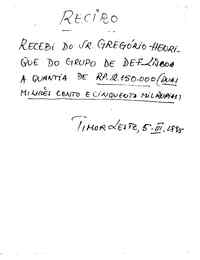 RECIBO
RECEBI DO SR. GREGÓRIO HENRI-
QUE DO GRUPO DE DEF-LISBOA
A QUANTIA DE RP. 2.150.000 (DUAS
MILHÕES CENTO E CINQUENTA MIL RUPIAS)
TIMOR LESTE, 5-III-1995